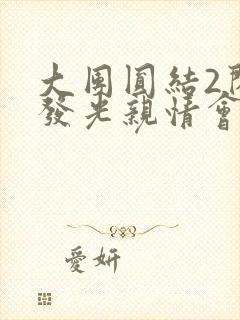 大團圓結2閃
發光親情會
愛妍